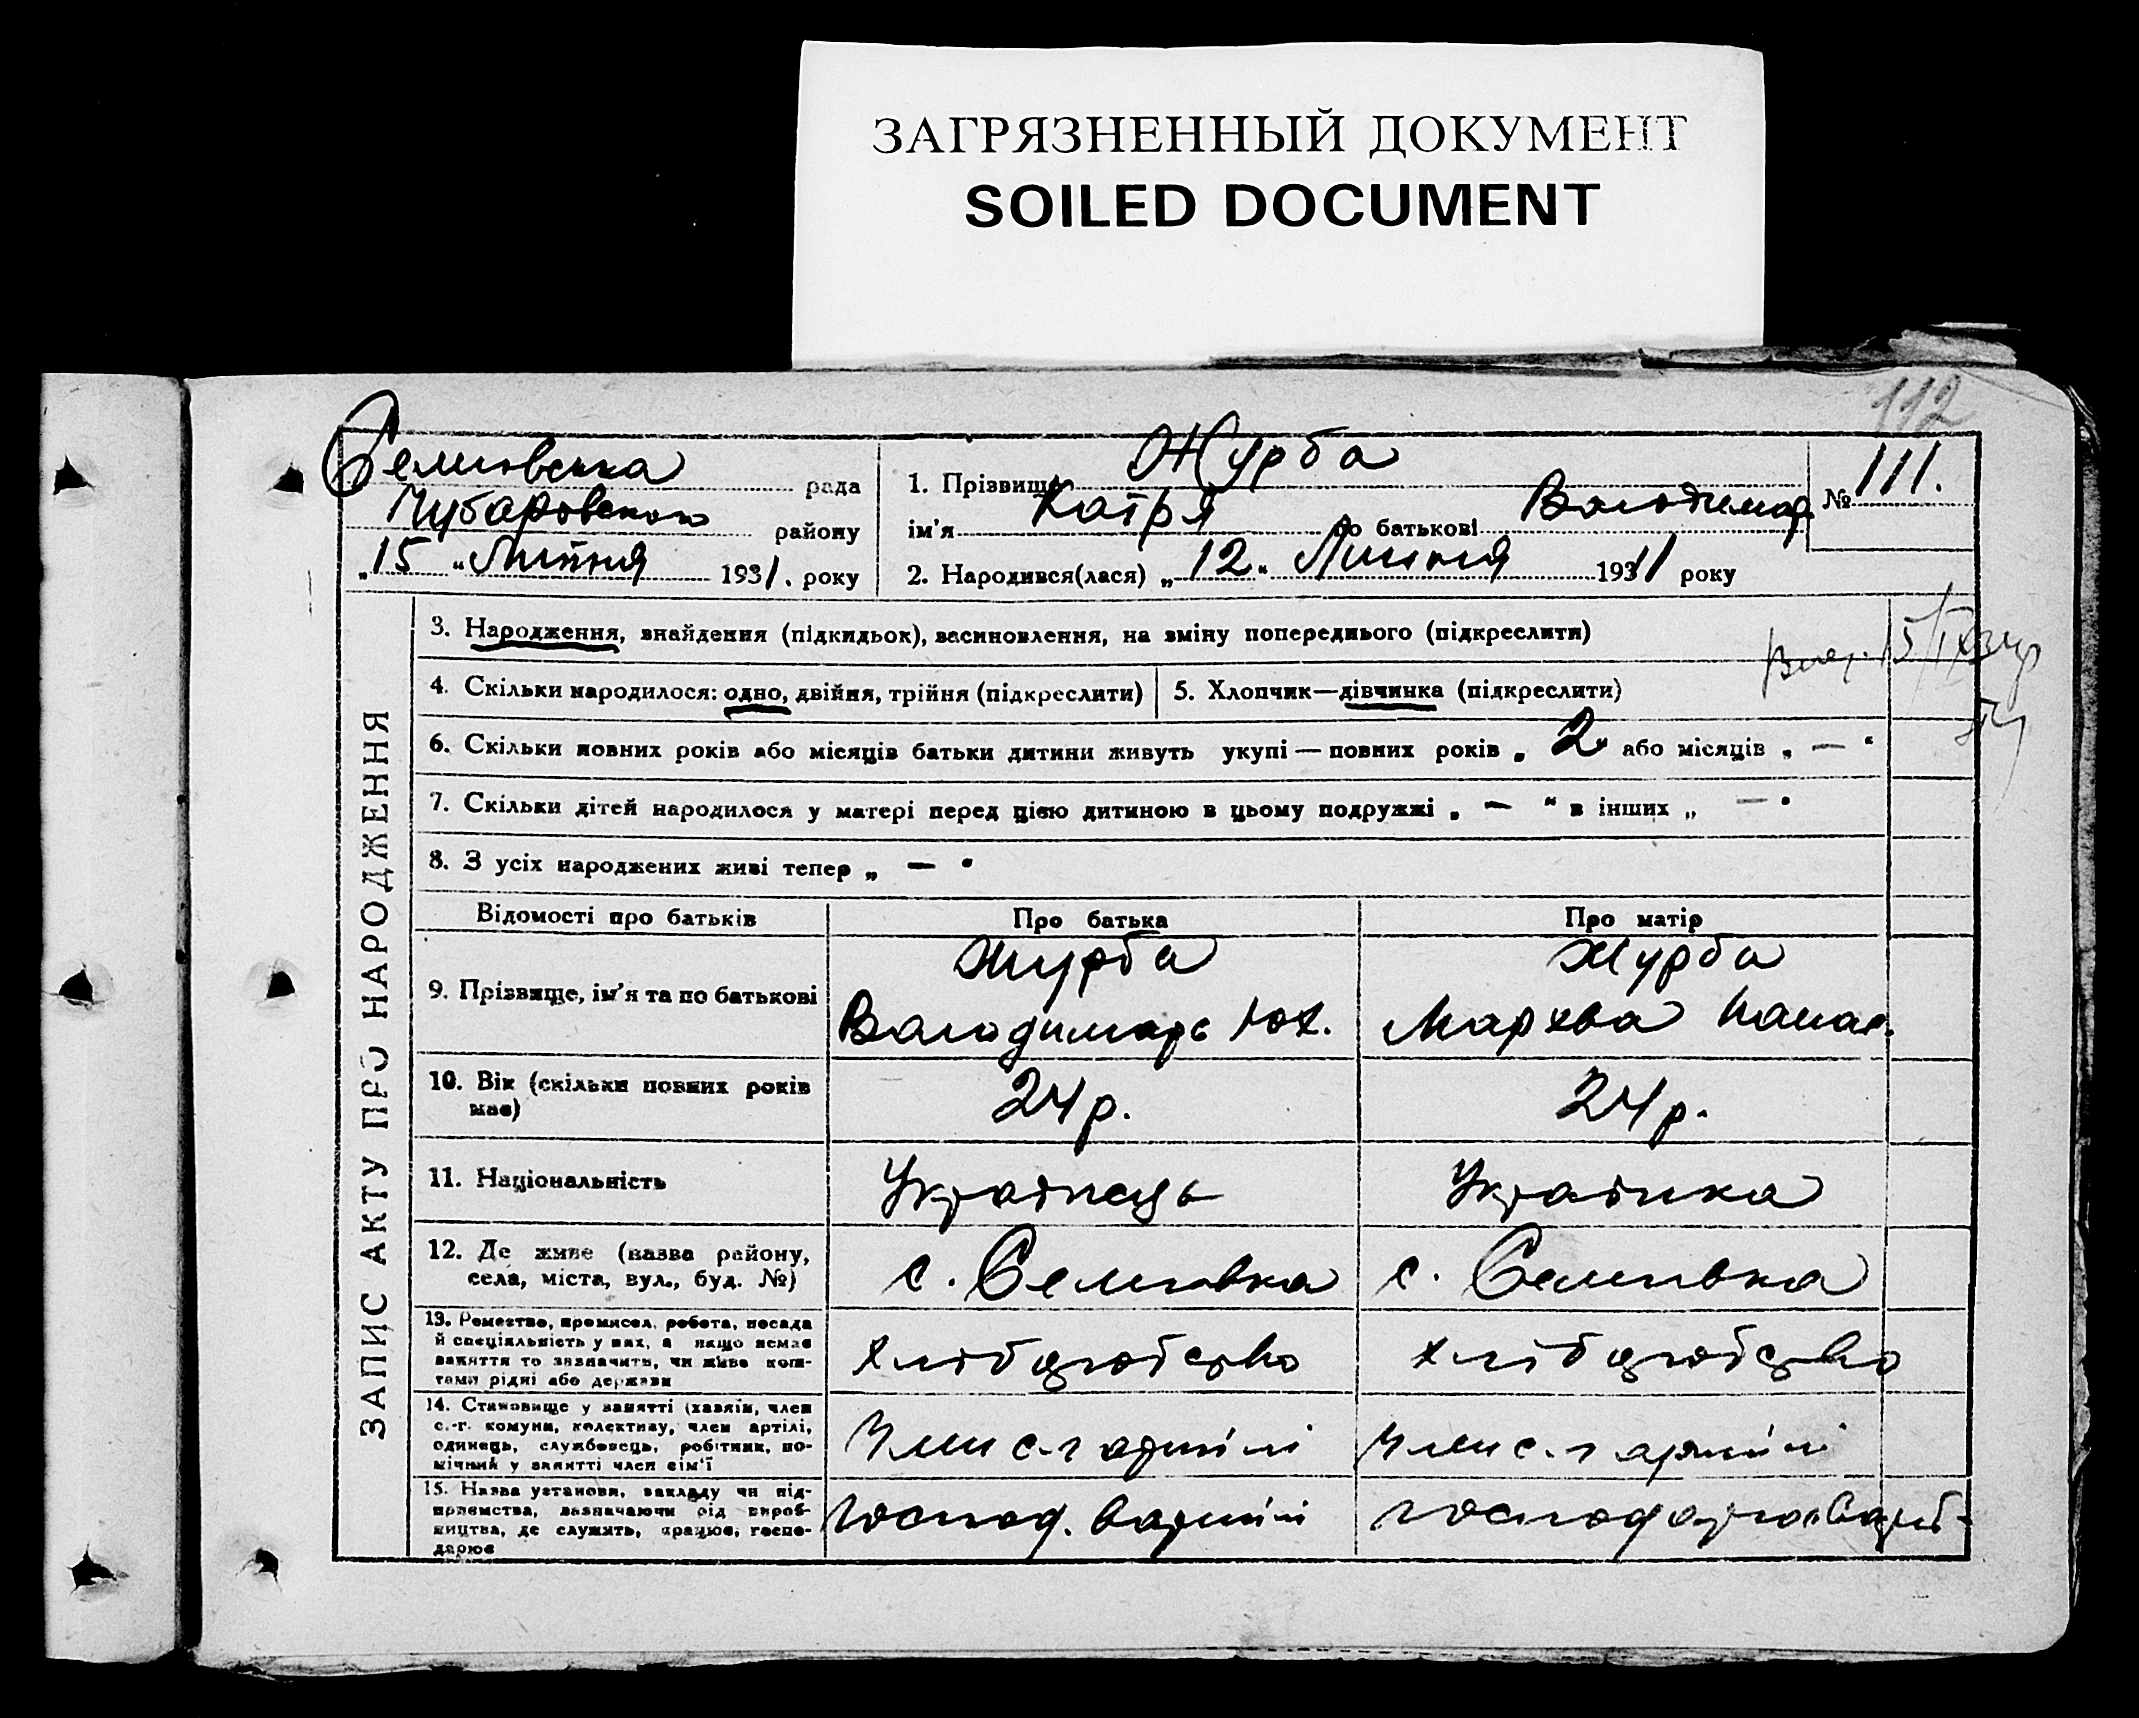 ЗАГРЯЗНЕННЫЙ ДОКУМЕНТ
SOILED DOCUMENT
112
Семиовська рада
Чубаровського району
„15“ Липня 1931. року
1. Прізвище Журба
ім’я Катря по батькові Володимар.
№ 111.
2. Народився(лася) „12“ Липня 1931 року
ЗАПИС АКТУ ПРО НАРОДЖЕННЯ
3. Народження, знайдення (підкидьок), васиновлення, на зміну попереднього (підкреслити)
15/IX
4. Скільки народилося: одно, двійня, трійня (підкреслити)
5. Хлопчик—дівчинка (підкреслити)
6. Скільки повних років або місяців батьки дитини живуть укупі — повних років „2“ або місяців „ — “
7. Скільки дітей народилося у матері перед цією дитиною в цьому подружжі „ — “ в інших „ — “
8. З усіх народжених живі тепер „ — “
Відомості про батьків
Про батька
Про матір
9. Прізвище, ім’я та по батькові
Журба
Володимарь Юх.
Журба
Мархва Панас.
10. Вік (скільки повних років має)
24 р.
24 р.
11. Національність
Українець
Українка
12. Де живе (назва району,
села, міста, вул., буд. №)
с. Семиівка
с. Семиівка
13. Ремество, промисел, робота, посада
й спеціяльність у них, а якщо немає
заняття то зазначити, чи живе кош-
тами рідні або держави
хліборобство
хліборобство
14. Становище у занятті (хазяїн, член
с.-г. комуни, колективу, член артілі,
одинець, службовець, робітник, по-
мічник у занятті член сім’ї
Член с.-г артілі
Член с.-г артілі
15. Назва установи, закладу чи під-
приємства, зазначаючи рід вироб-
ництва, де служить, працює, госпо-
дарює
господ. в артілі
господарює в арт-